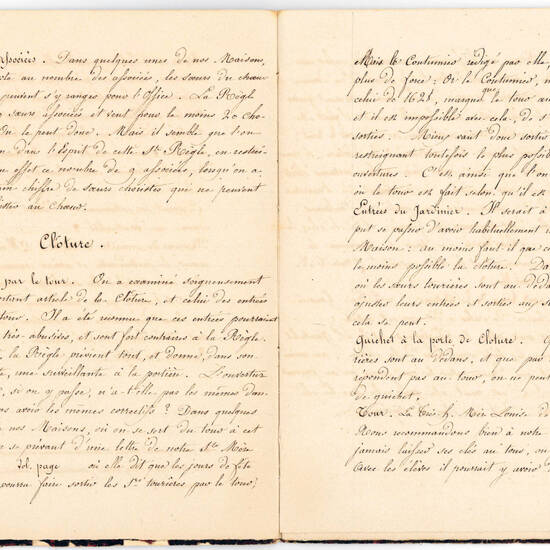 Associées. Dans quelques unes de nos Maisons,
au nombre des associées, les sœurs du chœur
peuvent s'y ranger pour l'Office. La Règle
sœurs associées et veut pour le moins 20 cho
En le peut donc. Mais il semble que l'on
dans l'Esprit de cette Ste Règle, en restrei
effet ce nombre de 9 associées, lorsqu'on a
chiffre de sœurs choristes qui ne peuvent
au Chœur.
Clôture.
par le tour. On a examiné soigneusement
article de la Clôture, et celui des entrées
tour. Il a été reconnu que ces entrées pourraient
très-abusives, et sont fort contraires à la Règle.
la Règle prévient tout, et donne, dans son
une surveillante à la portière. L'ouverture
si on y passe, n'a-t-elle pas les mêmes dan
avoir les mêmes correctifs? Dans quelques
nos Maisons, où on se sert du tour à cet
se prévaut d'une lettre de notre Ste Mère
Fol. page où elle dit que les jours de fête
pourra faire sortir les Srs tourières par le tour;
Mais le Coutumier rédigé par elle,
plus de force: Or le Coutumier,
celui de 1628, marque que le tour
et il est impossible avec cela, de s'
sorties. Mieux vaut donc sortir
restreignant toutefois le plus possi
ouvertures. C'est ainsi que l'on
où le tour est fait selon qu'il est
Entrées du Jardinier. Il serait à
pût se passer d'avoir habituellement
Maison: au moins faut-il que ce
le moins possible la clôture! Da
où les sœurs tourières sont au deda
ajuster leurs entrées et sorties aux
cela se peut.
Guichet à la porte de Clôture.
rières sont au dedans, et que pas
répondent pas au tour, on ne peut
de guichet.
Tour. La Très-h. Mère Louise de
Nous recommandons bien à notre
jamais laisser ses clés au tour, ou
Avec les élèves il pourrait y avoir d